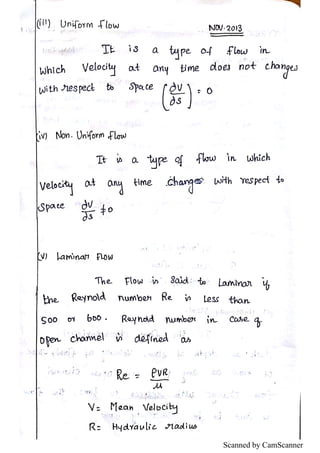 (iii) Uniform flow
NOV-2013
It is a type of flow in
which Velocity at any time does not changes
with respect to Space (dv/ds) = 0
(iv) Non-Uniform flow
It is a type of flow in which
Velocity at any time changes with respect to
Space dv/ds ≠ 0
(v) Laminar Flow
The Flow is Said to Laminar if
the Reynold number Re is less than
500 or 600. Reynold number in case of
open channel is defined as
Re = ρVR/μ
V= Mean Velocity
R= Hydraulic radius
Scanned by CamScanner